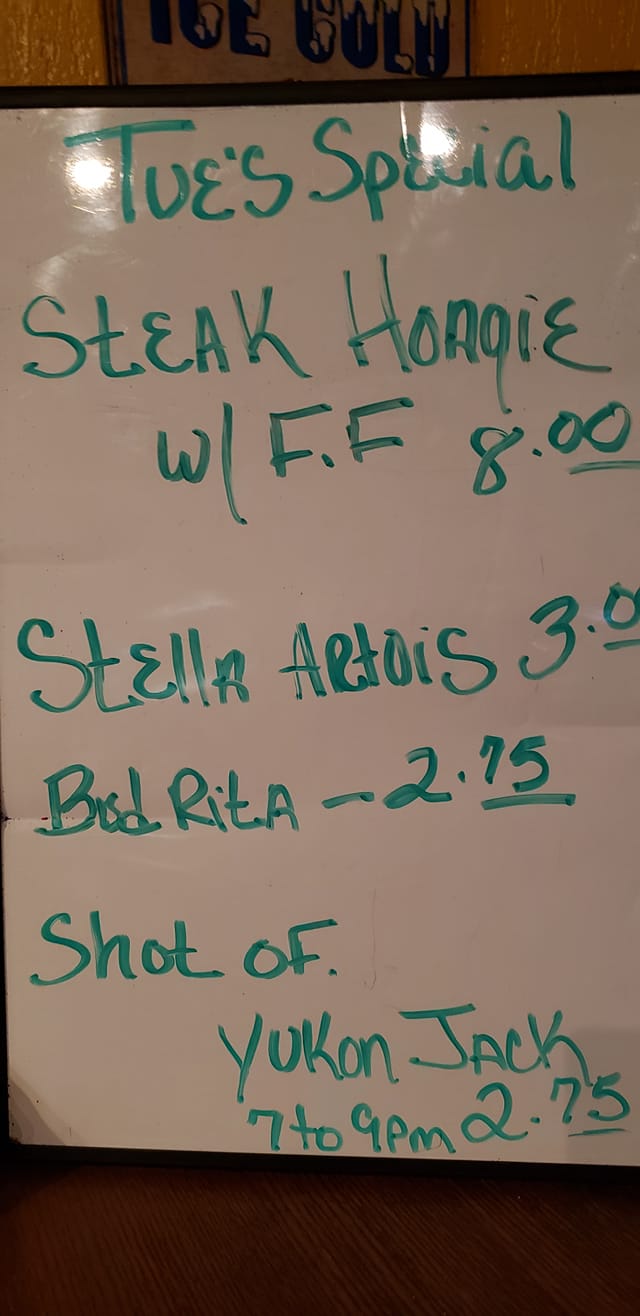 ICE COLD
TUE'S Special
STEAK HOAGIE
W/ F.F 8.00
Stella Artois 3.0
Bud RitA - 2.75
Shot of.
YUKon JACK
7 to 9pm 2.75